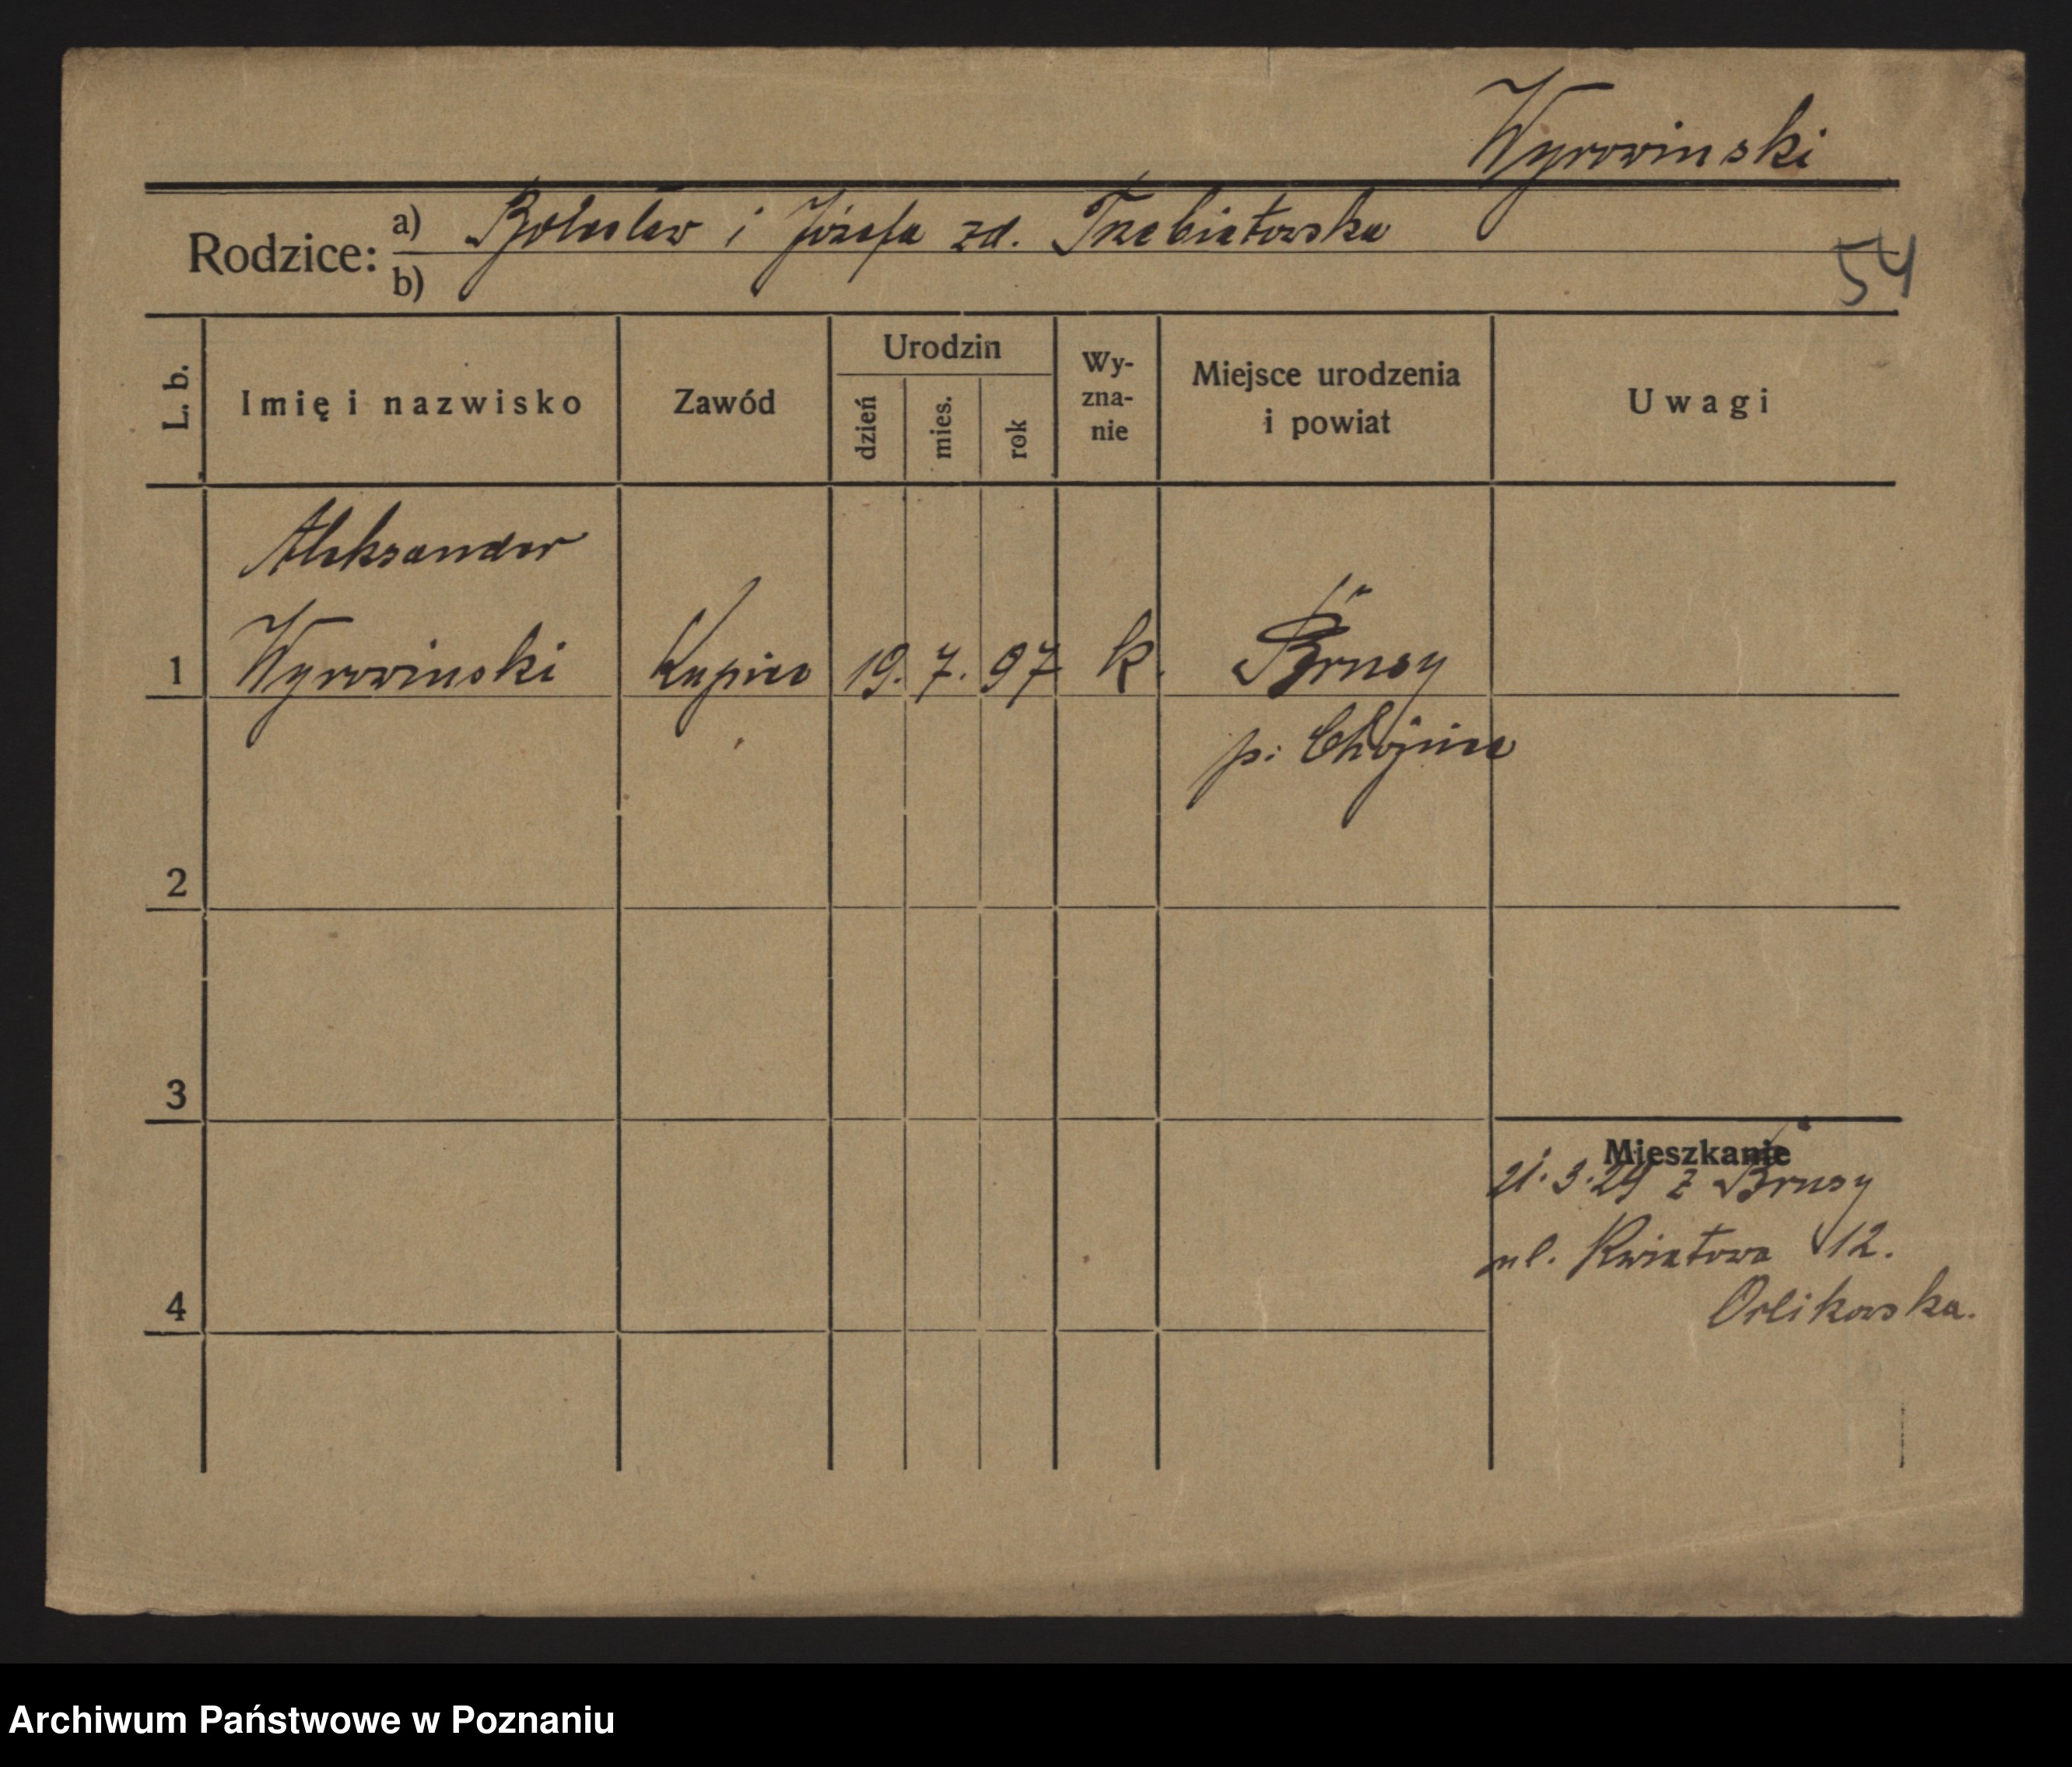 Wyrowinski
Rodzice: a) Bolesław i Józefa zd. Trzebiatowska
b)
54
L. b. Imię i nazwisko Zawód Urodzin dzień mies. rok Wy-zna-nie Miejsce urodzenia i powiat Uwagi
Aleksander
1 Wyrowinski Kupiec 19. 7. 97 k. Brusy
p: Chojnice
2
3
Mieszkanie
21.3.29 z Brusy
ul. Kwiatowa 12.
Orlikowska.
4
Archiwum Państwowe w Poznaniu